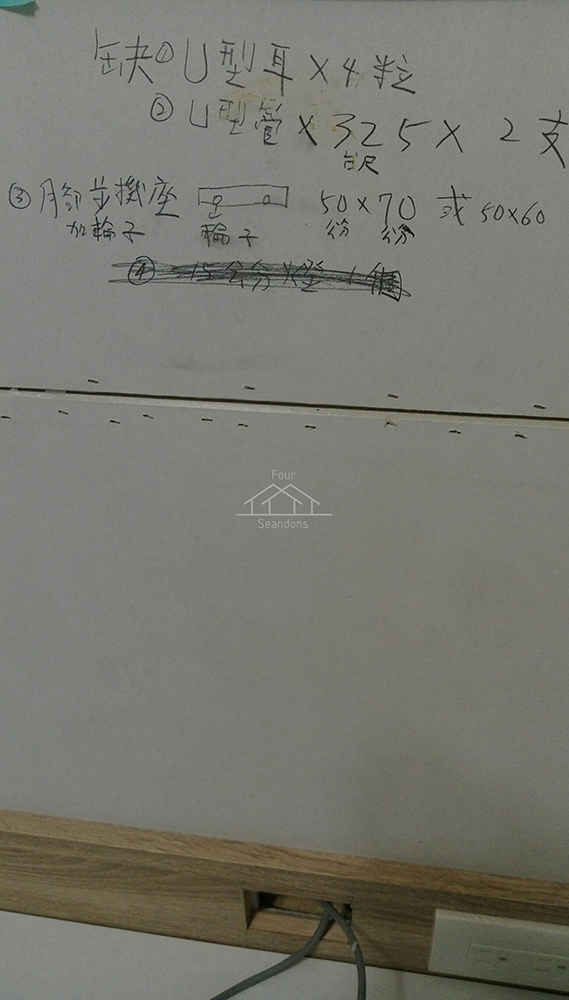 缺①U型耳×4粒
②U型管×325×2支
台尺
③腳步掛座 50×70 或 50×60
加輪子 輪子 分 分
④ 15公分×燈1個
Four
Seandons